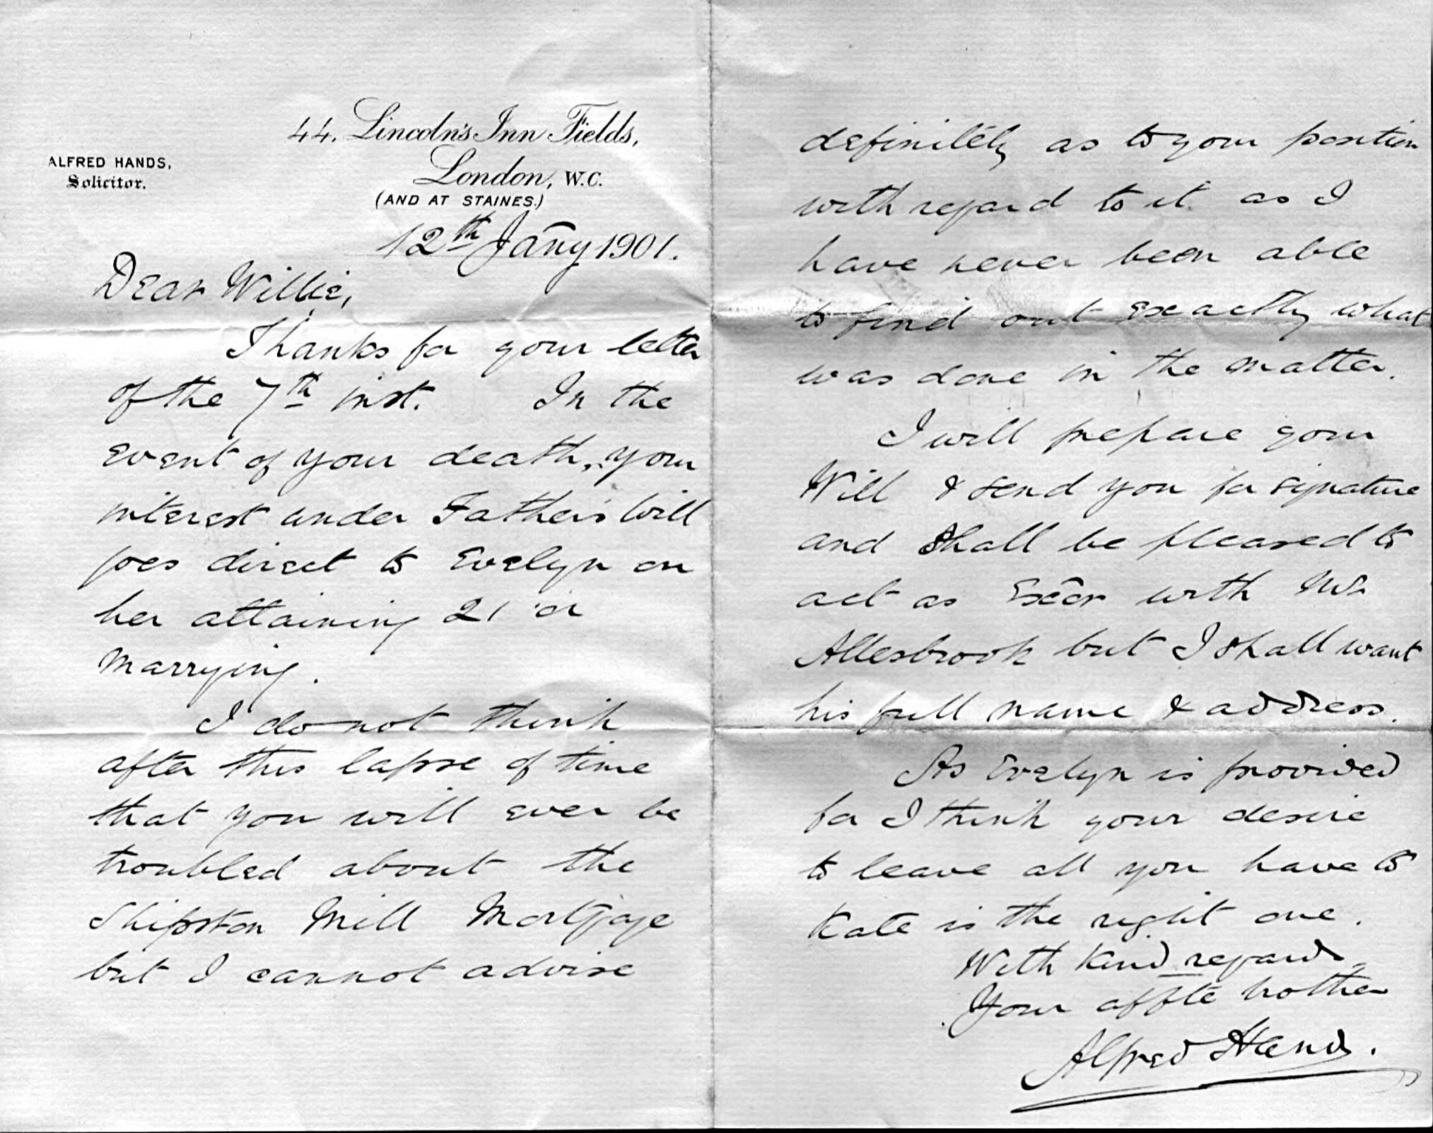 44, Lincoln's Inn Fields,
ALFRED HANDS,
Solicitor.
London, W.C.
(AND AT STAINES.)
12th Jany 1901.
Dear Willie,
Thanks for your letter
of the 7th inst. In the
event of your death, your
interest under Father's Will
goes direct to Evelyn on
her attaining 21 or
marrying.
I do not think
after this lapse of time
that you will ever be
troubled about the
Shipston Mill Mortgage
but I cannot advise
definitely as to your position
with regard to it as I
have never been able
to find out exactly what
was done in the matter.
I will prepare your
Will & send you for signature
and shall be pleased to
act as Exor with Mr
Allesbrook but I shall want
his full name & address.
As Evelyn is provided
for I think your desire
to leave all you have to
Kate is the right one.
With kind regards
Your affte brother
Alfred Hands.